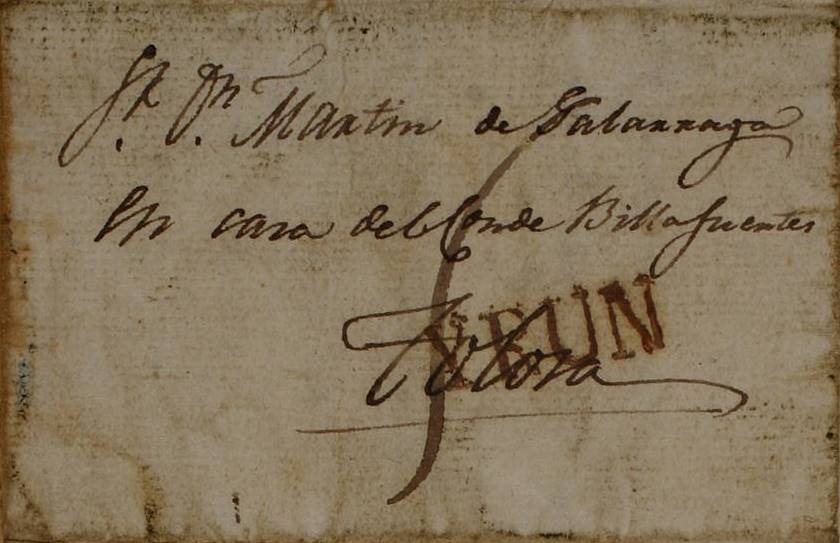 Sr. Dn. Martin de Galarraga
En casa del Conde Billafuentes
YRUN
Tolosa